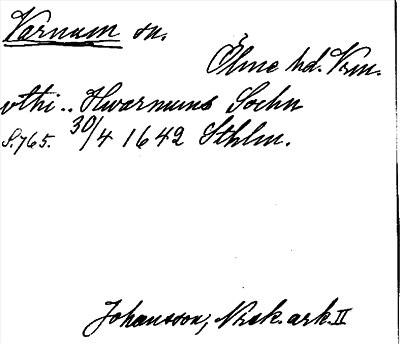 Varnum sn.
Ölme hd. Vrm.
vthi.. Hwarnums Sochn
S.765. 30/4 1642 Sthlm.
Johansson, Norsk. ark. II